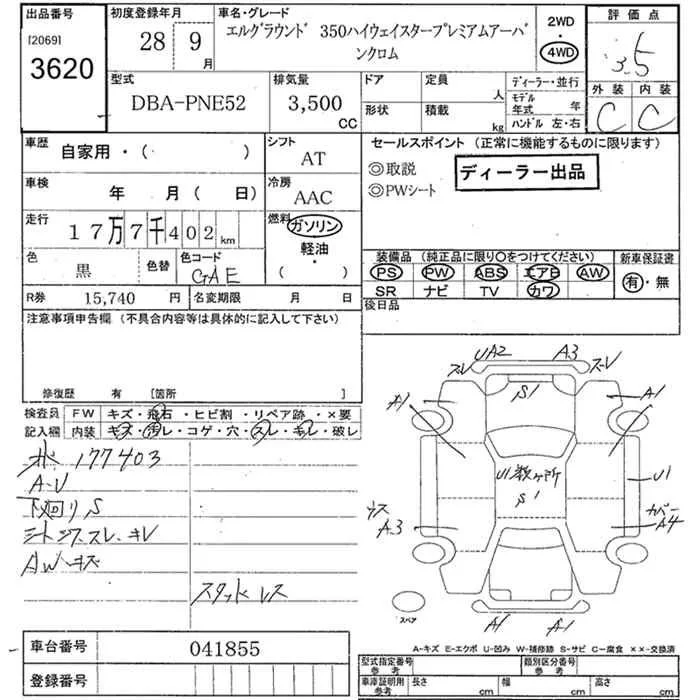 出品番号 初度登録年月 車名・グレード 2WD 評価点
[2069] 28 9 エルグラウンド 350ハイウェイスタープレミアムアーバ ・ 3.5
3620 月 ンクロム 4WD
型式 排気量 ドア 定員 人 ディーラー・並行 外装 内装
DBA-PNE52 3,500 cc 形状 積載 kg モデル年式 年 C C
ハンドル 左・右
車歴 自家用・( ) シフト AT セールスポイント (正常に機能するものに限ります)
◎取説 ディーラー出品
車検 年 月( 日) 冷房 AAC ◎PWシート
走行 17万7千402km 燃料 ガソリン
軽油
・
( )
色 黒 色替 色コード GAE 装備品 (純正品に限り○をつけてください) 新車保証書
PS PW ABS エアB AW 有・無
SR ナビ TV カワ
R券 15,740 円 名変期限 月 日 後日品
注意事項申告欄 (不具合内容等は具体的に記入して下さい)
修復歴 有 [箇所 ]
検査員 FW キズ・飛石・ヒビ割・リペア跡・×要
記入欄 内装 キズ・汚レ・コゲ・穴・スレ・キレ・破レ
177403
A-V
下廻りS
シートシワスレ・キレ
AWキズ
スタッドレス
UA2 A3
S1
A1 A1
U1数ヶ所
S1
U1
A3
カバー
A4
A1 A1
スペア
A-キズ E-エクボ U-凹み W-補修跡 S-サビ C-腐食 ××-交換済
車台番号 041855
登録番号
型式指定番号 参考 類別区分番号 参考
車庫証明用 参考 長さ cm 幅 cm 高さ cm